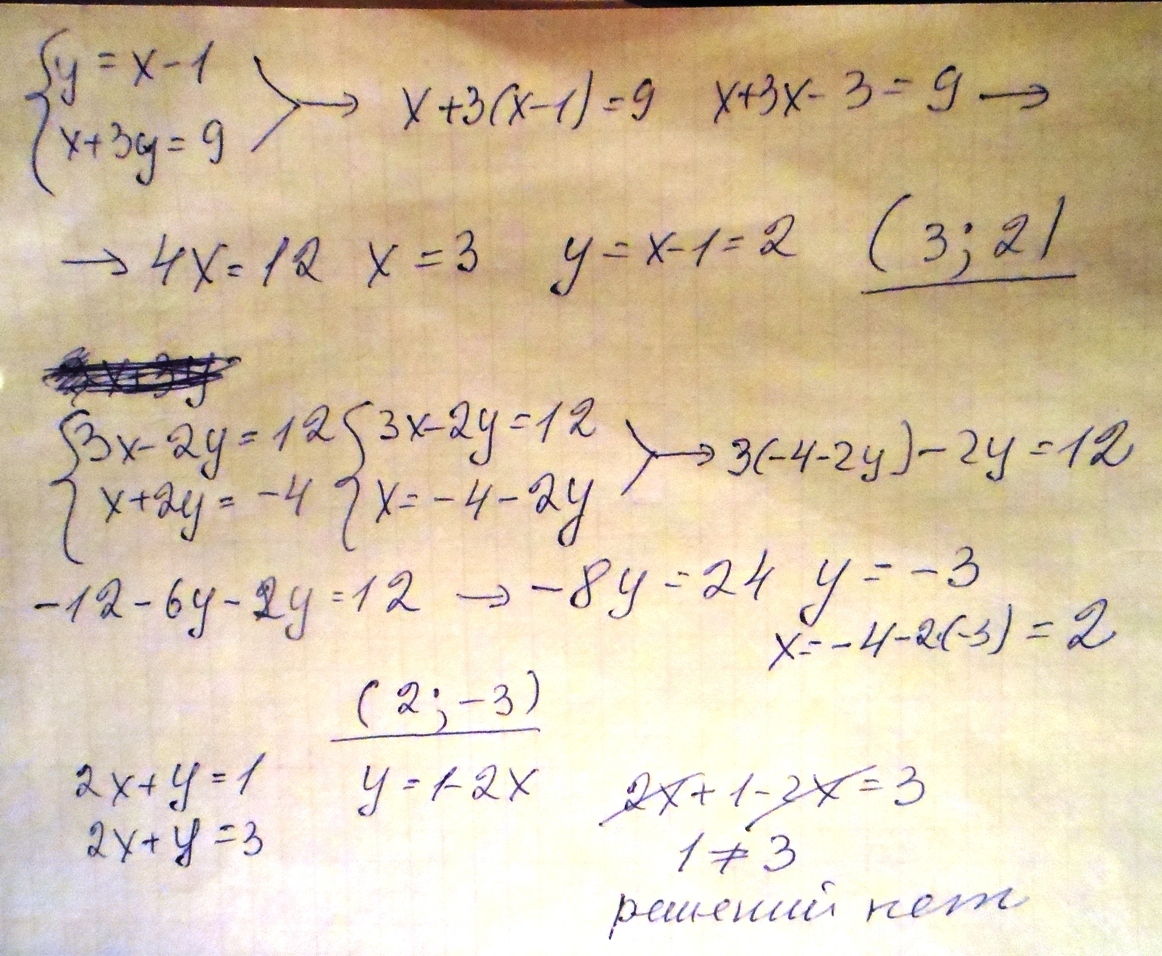 {y = x-1
{x+3y = 9 > → x+3(x-1) = 9 x+3x-3 = 9 →
→ 4x = 12 x = 3 y = x-1 = 2 (3; 2)
{3x-2y = 12 {3x-2y = 12
{x+2y = -4 {x = -4-2y > → 3(-4-2y)-2y = 12
-12-6y-2y = 12 → -8y = 24 y = -3
x = -4-2(-3) = 2
(2; -3)
2x+y = 1 y = 1-2x 2x+1-2x = 3
2x+y = 3 1 ≠ 3
решений нет